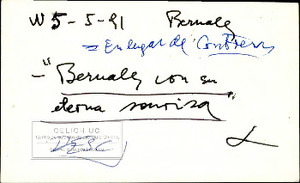 W 5-5-91 Bernales
= En lugar de Contreras
- "Bernales con su
eterna sonrisa"
CELICH UC